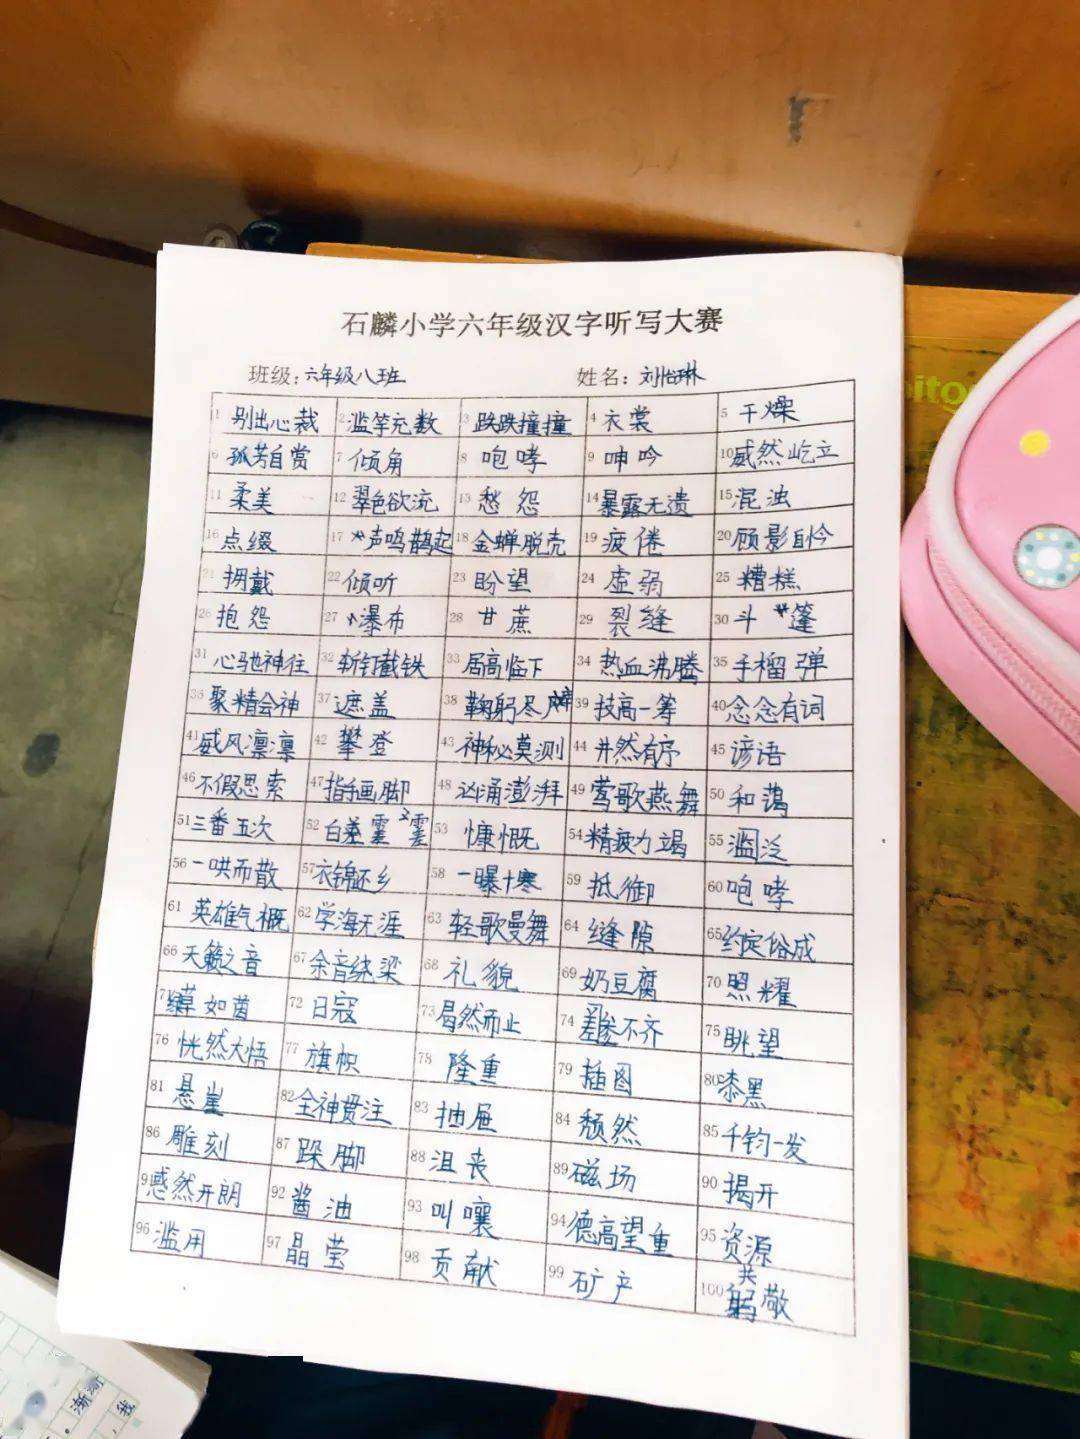 石麟小学六年级汉字听写大赛
班级：六年级八班 姓名：刘怡琳
1 别出心裁 2 滥竽充数 3 跌跌撞撞 4 衣裳 5 干燥
6 孤芳自赏 7 倾角 8 咆哮 9 呻吟 10 威然屹立
11 柔美 12 翠色欲流 13 愁怨 14 暴露无遗 15 混浊
16 点缀 17 声鸣鹊起 18 金蝉脱壳 19 疲倦 20 顾影自今
21 拥戴 22 倾听 23 盼望 24 虚弱 25 糟糕
26 抱怨 27 瀑布 28 甘蔗 29 裂缝 30 斗篷
31 心驰神往 32 斩钉截铁 33 居高临下 34 热血沸腾 35 手榴弹
36 聚精会神 37 遮盖 38 鞠躬尽瘁 39 技高一筹 40 念念有词
41 威风凛凛 42 攀登 43 神秘莫测 44 井然有序 45 谚语
46 不假思索 47 指手画脚 48 汹涌澎拜 49 莺歌燕舞 50 和蔼
51 三番五次 52 白 53 慷慨 54 精疲力竭 55 滥泛
56 一哄而散 57 衣锦还乡 58 一曝十寒 59 抵御 60 咆哮
61 英雄气概 62 学海无涯 63 轻歌曼舞 64 缝隙 65 约定俗成
66 天籁之音 67 余音绕梁 68 礼貌 69 奶豆腐 70 照耀
7 草如茵 72 日寇 73 曷然而止 74 参不齐 75 眺望
76 恍然大悟 77 旗帜 78 隆重 79 插图 80 漆黑
81 悬崖 82 全神贯注 83 抽屉 84 颓然 85 千钧一发
86 雕刻 87 跺脚 88 沮丧 89 磁场 90 揭开
9 惑然开朗 92 酱油 93 叫嚷 94 德高望重 95 资源
96 滥用 97 晶莹 98 贡献 99 矿产 100 敬
共